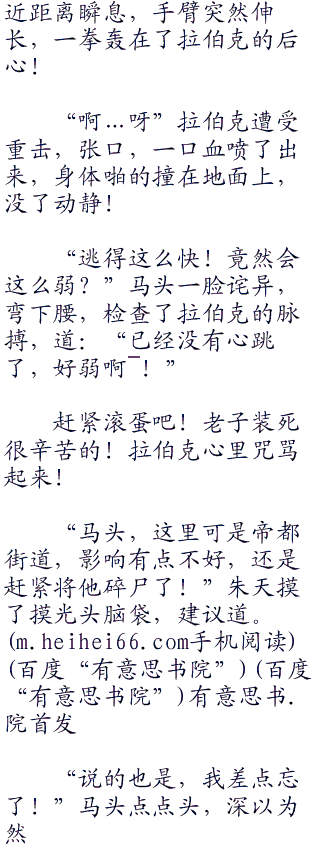 近距离瞬息，手臂突然伸
长，一拳轰在了拉伯克的后
心！
“啊…呀”拉伯克遭受
重击，张口，一口血喷了出
来，身体啪的撞在地面上，
没了动静！
“逃得这么快！竟然会
这么弱？”马头一脸诧异，
弯下腰，检查了拉伯克的脉
搏，道：“已经没有心跳
了，好弱啊¯！”
赶紧滚蛋吧！老子装死
很辛苦的！拉伯克心里咒骂
起来！
“马头，这里可是帝都
街道，影响有点不好，还是
赶紧将他碎尸了！”朱天摸
了摸光头脑袋，建议道。
(m.heihei66.com手机阅读)
(百度“有意思书院”)(百度
“有意思书院”)有意思书.
院首发
“说的也是，我差点忘
了！”马头点点头，深以为
然